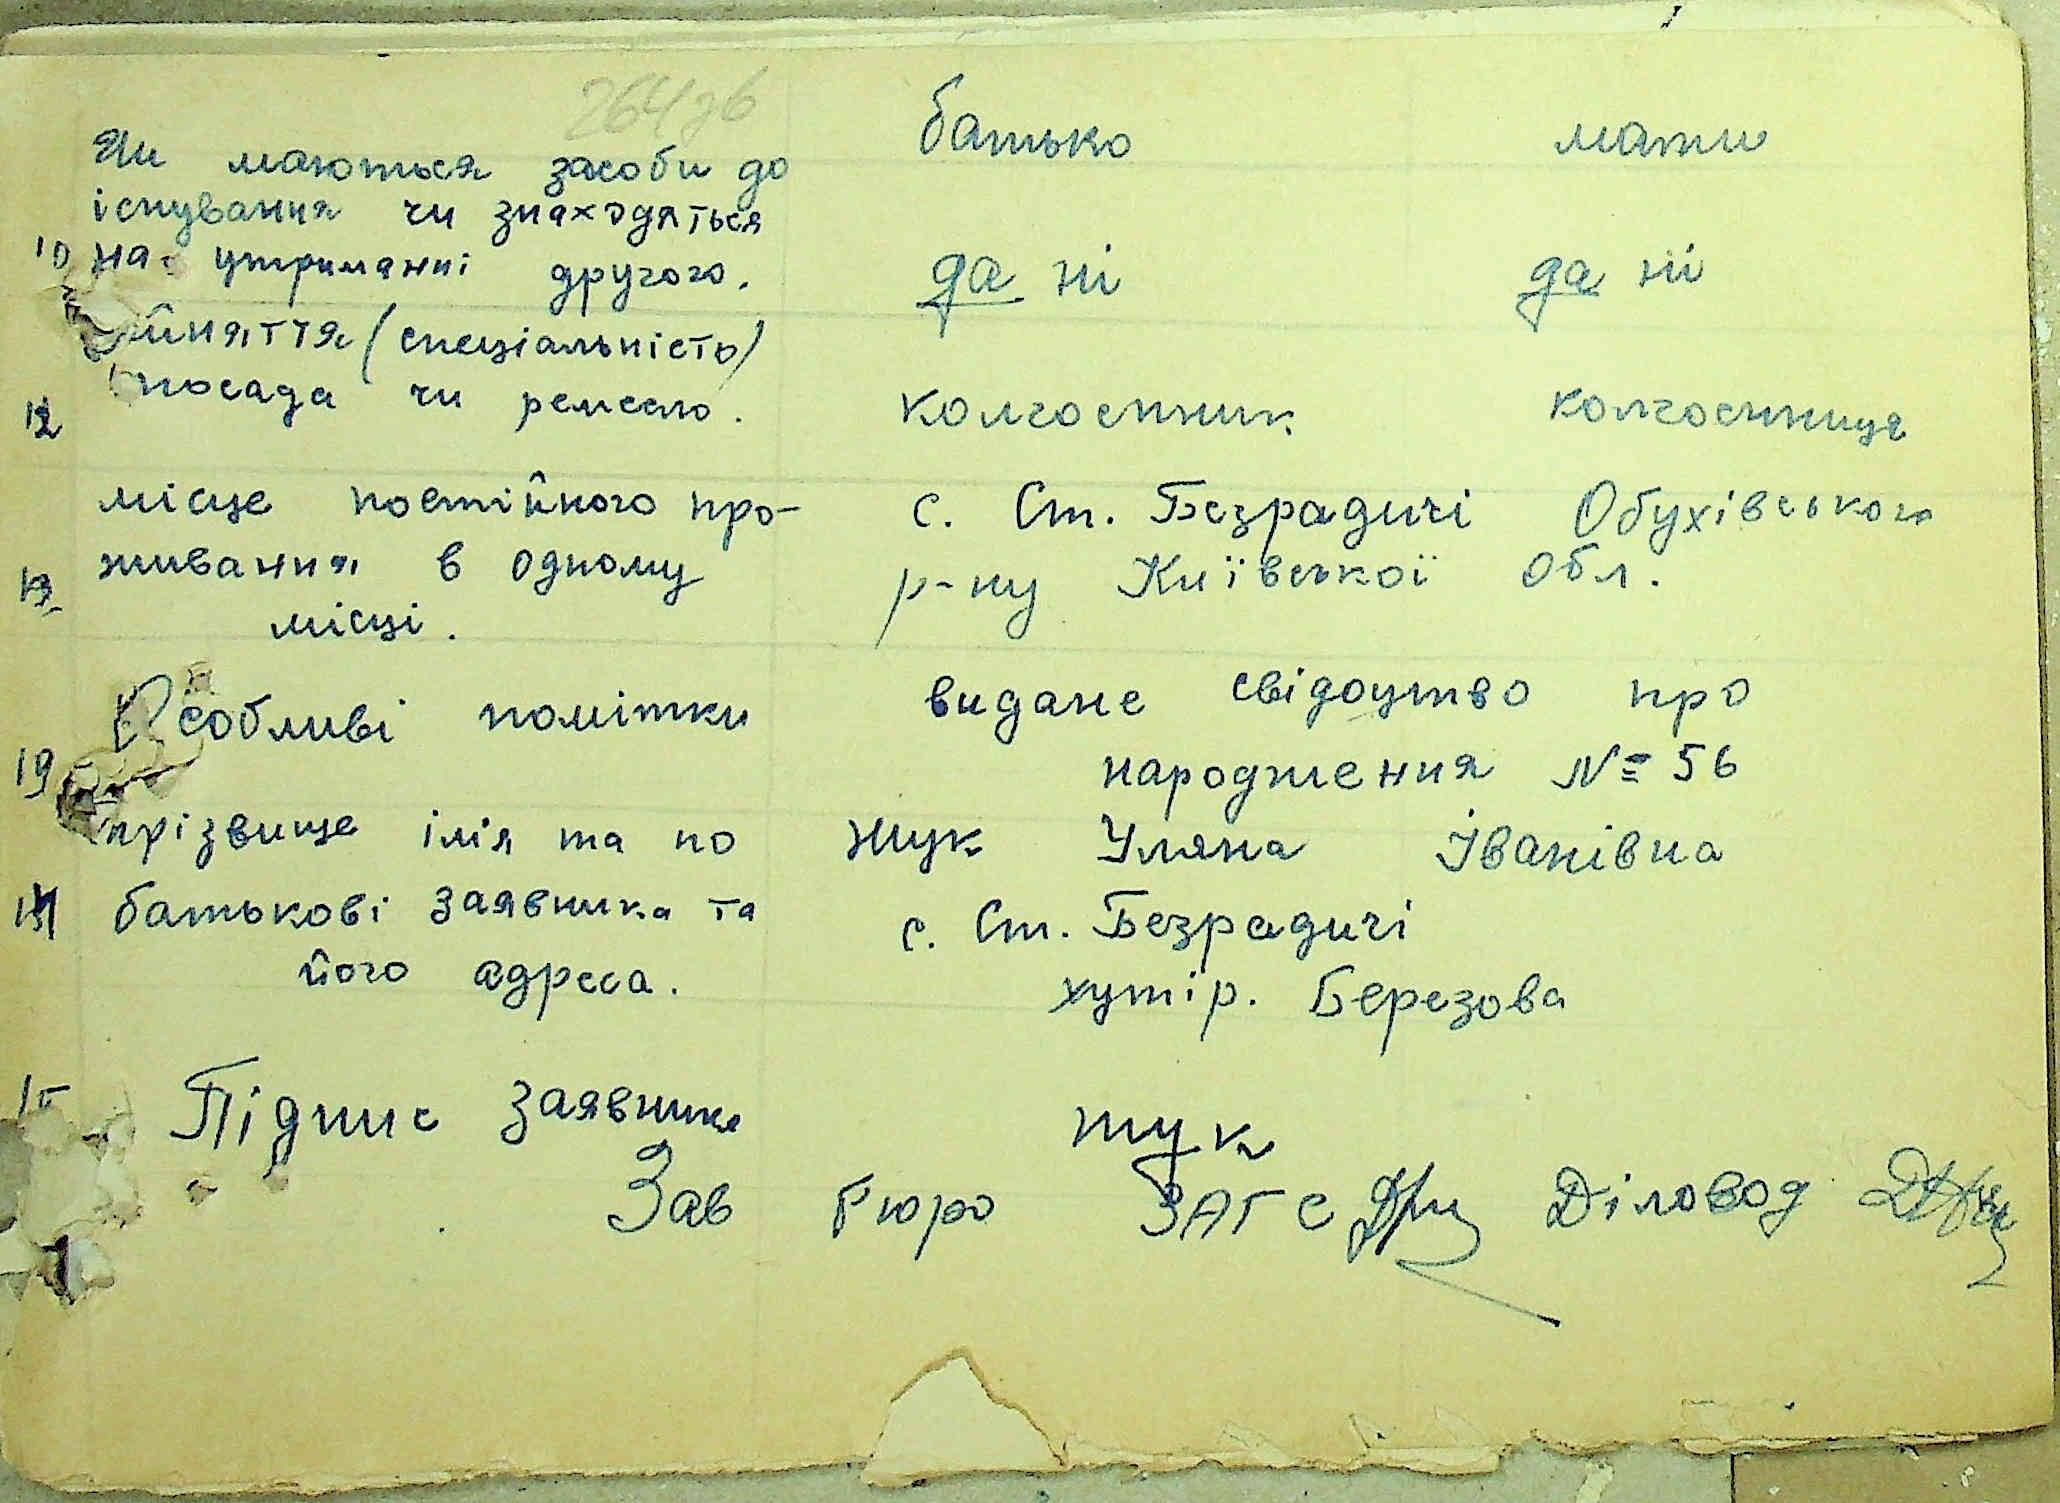 264зв
батько мати
Чи маються засоби до
існування чи знаходяться
10 на утриманні другого. да ні да ні
йняття (спеціальність)
посада чи ремесло.
12 колгоспник колгоспниця
місце постійного про- с. Ст. Безрадичі Обухівського
живання в одному р-ну Київської обл.
13.
місці.
Особливі помітки видане свідоцтво про
19 народження № 56
прізвище імʼя та по Жук Уляна Іванівна
14 батькові заявника та с. Ст. Безрадичі
його адреса. хутір. Березова
15 Підпис заявника Жук
Зав Бюро ЗАГС Діловод